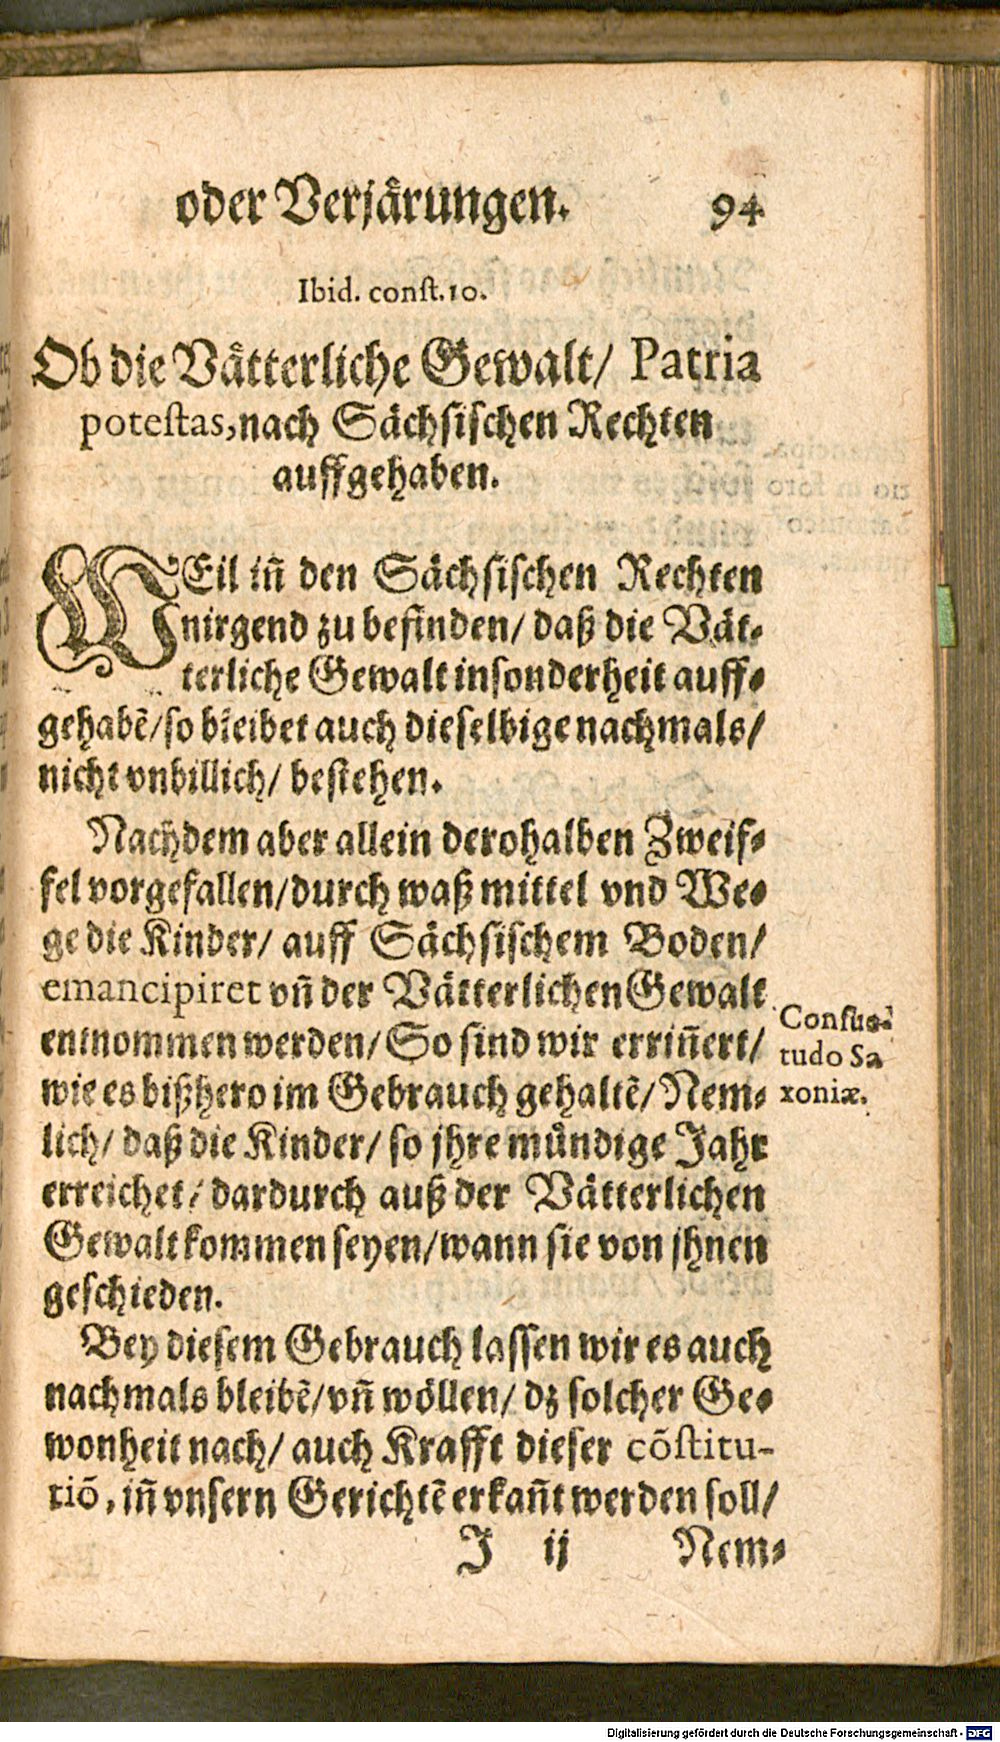 oder Verjärungen. 94
Ibid. const. 10.
Ob die Vätterliche Gewalt/ Patria
potestas, nach Sächsischen Rechten
auffgehaben.
WEil iñ den Sächsischen Rechten
nirgend zu befinden/ daß die Vät-
terliche Gewalt insonderheit auff-
gehabẽ/ so bleibet auch dieselbige nachmals/
nicht vnbillich/ bestehen.
Nachdem aber allein derohalben Zweif-
fel vorgefallen/ durch waß mittel vnd We-
ge die Kinder/ auff Sächsischem Boden/
emancipiret vñ der Vätterlichen Gewalt
entnommen werden/ So sind wir erriñert/
wie es bißhero im Gebrauch gehaltẽ/ Nem-
lich/ daß die Kinder/ so jhre mündige Jahr
erreichet/ dardurch auß der Vätterlichen
Gewalt kommen seyen/ wann sie von jhnen
geschieden.
Consue-
tudo Sa
xoniæ.
Bey diesem Gebrauch lassen wir es auch
nachmals bleibẽ/ vñ wöllen/ dz solcher Ge-
wonheit nach/ auch Krafft dieser cõstitu-
tiõ, iñ vnsern Gerichtẽ erkañt werden soll/
J ij Nem-
Digitalisierung gefördert durch die Deutsche Forschungsgemeinschaft - DFG